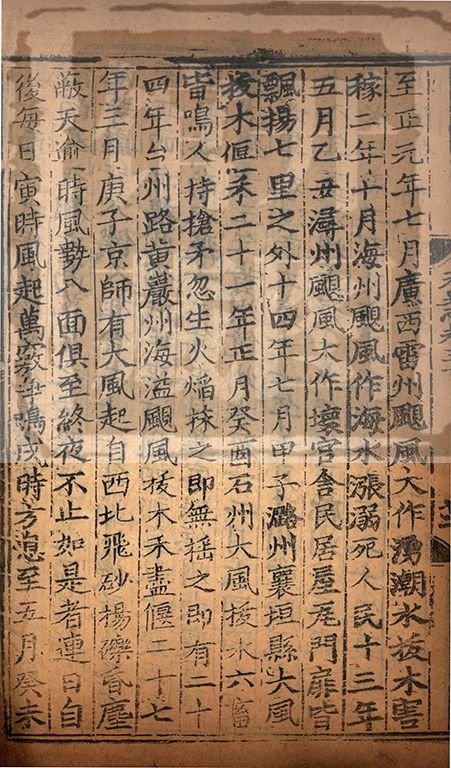 至正元年七月廣西雷州颶風大作湧潮水拔木害
稼二年十月海州颶風作海水漲溺死人民十三年
五月乙丑潯州颶風大作壞官舍民居屋瓦門扉皆
飄揚七里之外十四年七月甲子潞州襄垣縣大風
拔木偃禾二十一年正月癸酉石州大風拔木六畜
皆鳴人持槍矛忽生火焰抹之即無搖之即有二十
四年台州路黃巖州海溢颶風拔木禾盡偃二十七
年三月庚子京師有大風起自西北飛砂揚礫昏塵
蔽天逾時風勢八面俱至終夜不止如是者連日自
後每日寅時風起萬竅爭鳴戌時方息至五月癸未